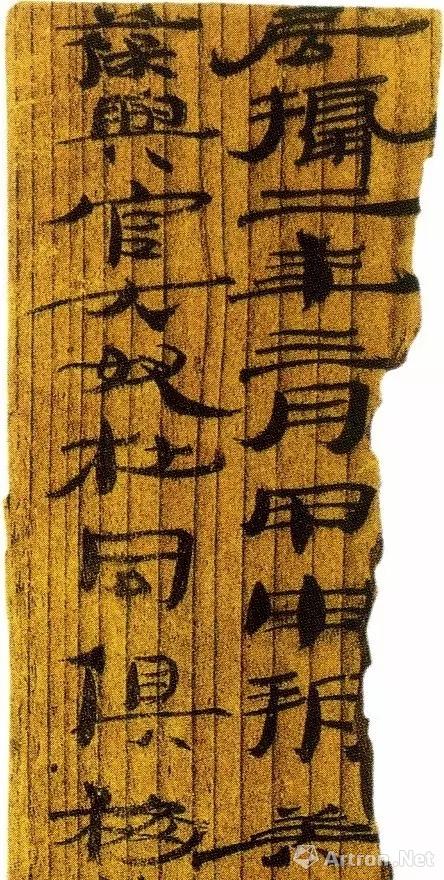 居攝二年三月甲申朔癸
葆與官大奴杜同俱移
Artron.Net